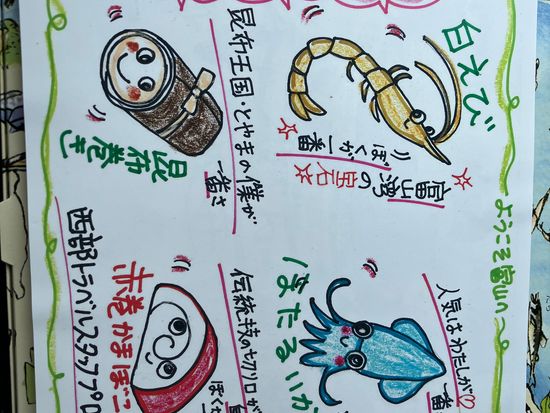 ようこそ富山へ
白えび
富山湾の宝石
ぼくが一番
人気はわたしが♡
一番
ほたるいか
昆布王国・とやまの僕が
一番さ
昆布巻き
伝統持の切り口が
赤巻かまぼこ
西部トラベルスタッフ